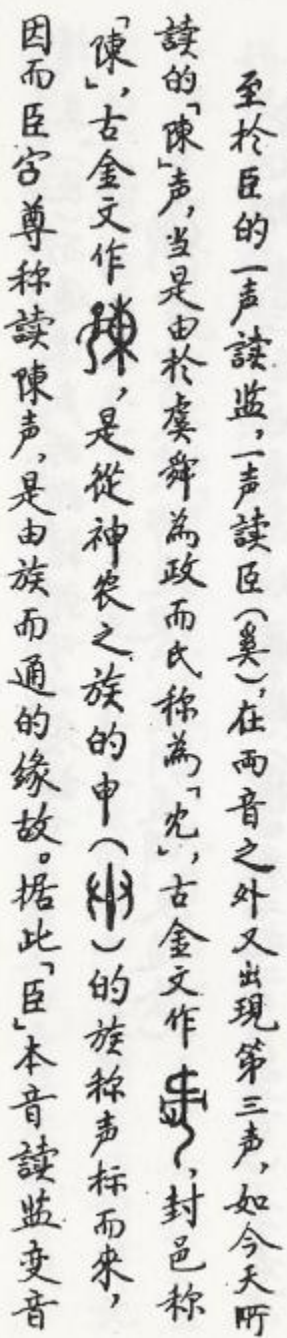 至於臣的一声讀监，一声讀臣（奚），在兩音之外又出現第三声，如今天所
讀的「陳」声，当是由於虞舜為政而氏称為「允」，古金文作，封邑称
「陳」，古金文作，是從神农之族的申（）的族称声标而來，
因而臣字尊称讀陳声，是由族而通的緣故。据此「臣」本音讀监变音